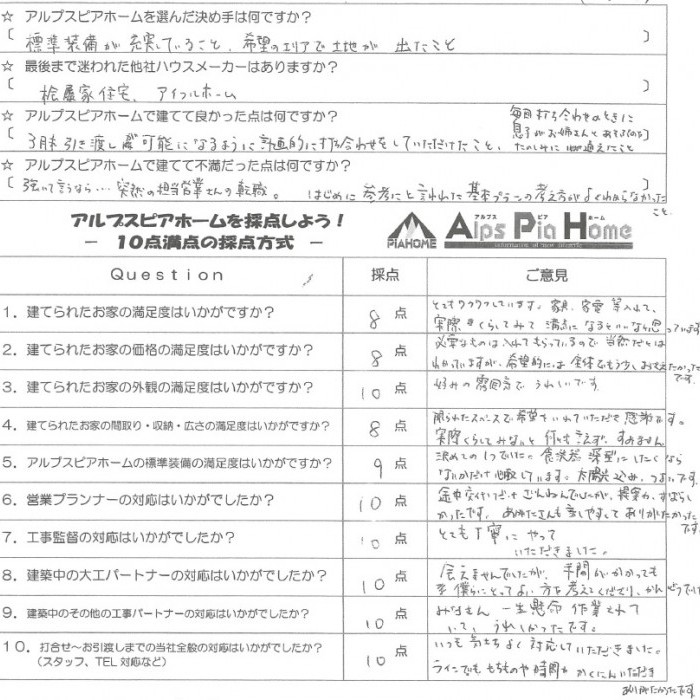 ☆ アルプスピアホームを選んだ決め手は何ですか?
標準装備が充実していること、希望のエリアで土地が出たこと
☆ 最後まで迷われた他社ハウスメーカーはありますか?
桧家住宅、アイフルホーム
☆ アルプスピアホームで建てて良かった点は何ですか?
毎回打ち合わせのときに
息子がお姉さんとあそぶのを
3月末引き渡しが可能になるように計画的に打ち合わせをしていただけたこと、
たのしみに
☆ アルプスピアホームで建てて不満だった点は何ですか?
強いて言うなら…突然の担当営業さんの転職。 はじめに参考にと言われた基本プランの考え方がよくわからなかった
こと
アルプスピアホームを採点しよう!
- 10点満点の採点方式 -
PIAHOME
アルプス ピア ホーム
Alps Pia Home
Question 採点 ご意見
1.建てられたお家の満足度はいかがですか? 8 点
とてもワクワクしています。家具、家電等入れて、
実際くらしてみて満点になるといいなと思っています
2.建てられたお家の価格の満足度はいかがですか? 8 点
必要なものは入れてもらっているので当然だとは
わかっていますが、希望的には全体でもう少しおさえたかった
です。
3.建てられたお家の外観の満足度はいかがですか? 10 点
好みの雰囲気でうれしいです
4.建てられたお家の間取り・収納・広さの満足度はいかがですか? 8 点
限られたスペースで希望をいれていただけて感謝です。
実際くらしてみないと何とも言えず、すみません
5.アルプスピアホームの標準装備の満足度はいかがですか? 9 点
決めての1つでした。食洗器 深型にしたくなら
ないかだけ心配しています。太陽光込み、つよいです
6.営業プランナーの対応はいかがでしたか? 10 点
ざんねんでしたが、提案力、すばらし
かったです。 も話しやすくてありがたかった
です。
7.工事監督の対応はいかがでしたか? 10 点
とても丁寧にやって
いただきました。
8.建築中の大工パートナーの対応はいかがでしたか? 10 点
会えませんでしたが、手間がかかっても
僕らにとってよい方を考えてくださり、
9.建築中のその他の工事パートナーの対応はいかがでしたか? 10 点
みなさん一生懸命作業されて
いて、うれしかったです。
10.打合せ~お引渡しまでの当社全般の対応はいかがでしたか?
(スタッフ、TEL対応など) 10 点
いつも気もちよく対応していただきました。
ラインでももちものや時間をかくにんいただき
ありがたかったです。